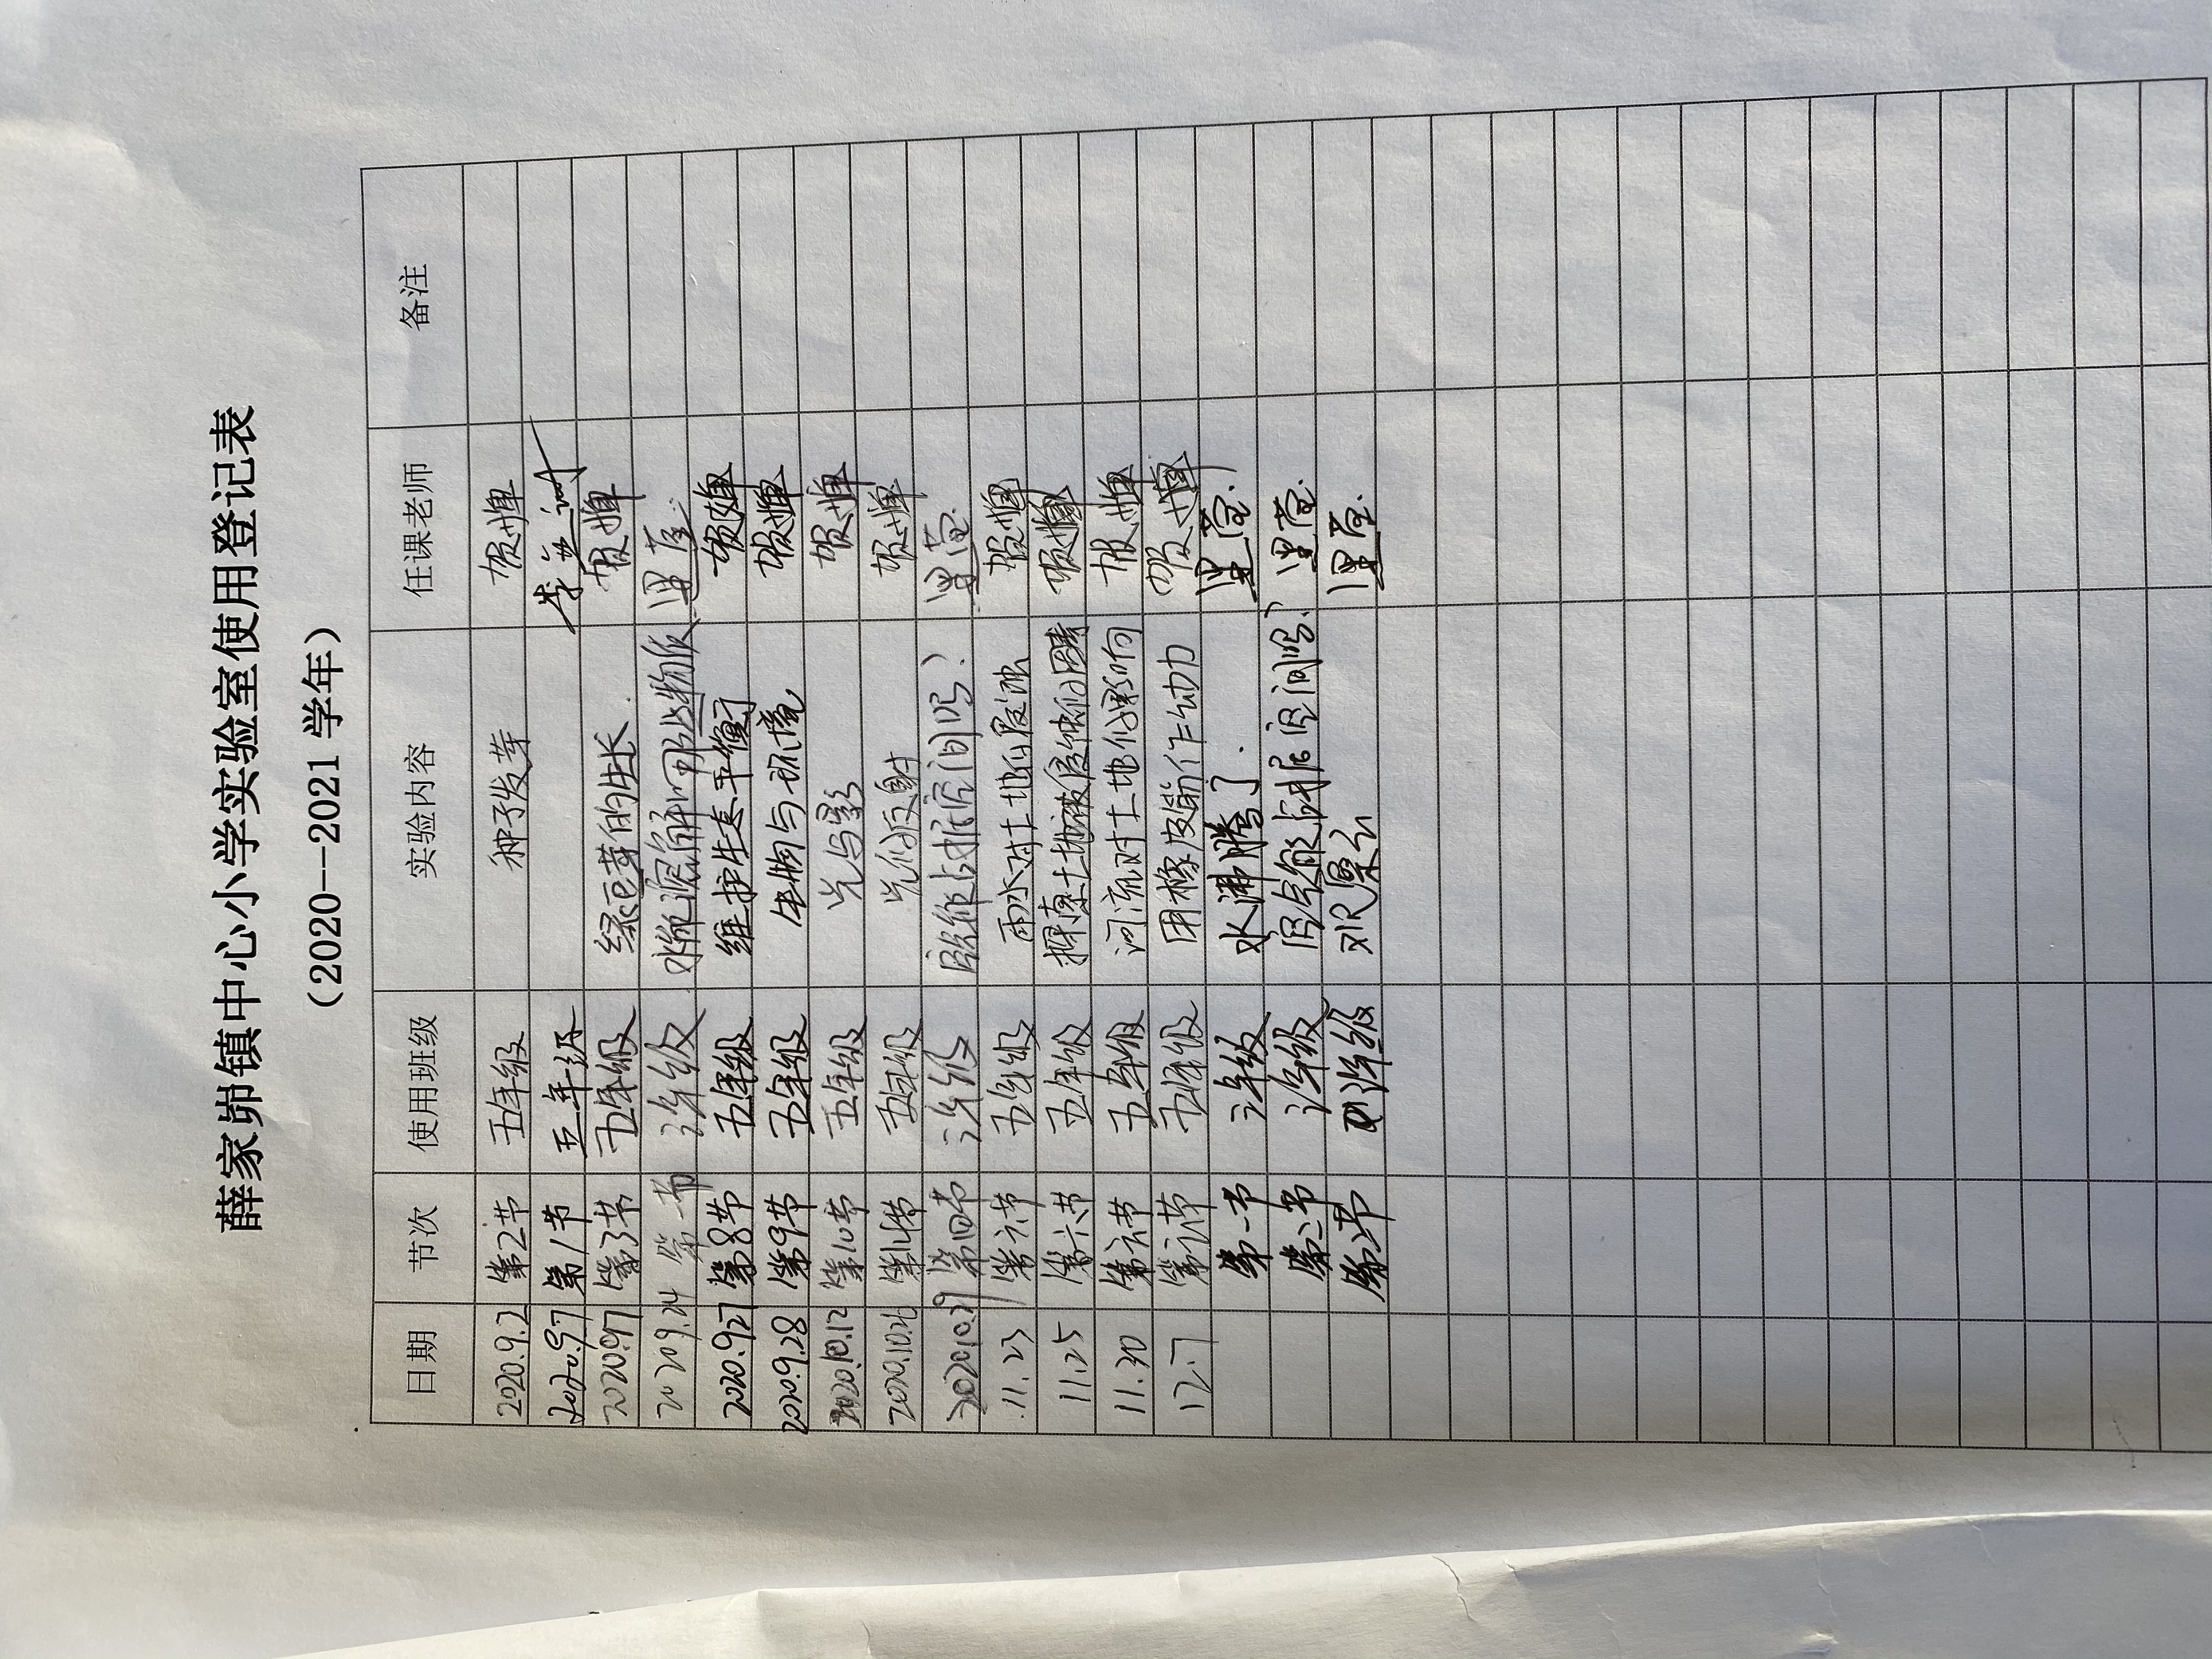 薛家峁镇中心小学实验室使用登记表
（2020--2021 学年）
日期 节次 使用班级 实验内容 任课老师 备注
2020.9.2 第2节 五年级 种子发芽 贺婵
2020.9.7 第1节 五年级 李
2020.9.7 第3节 五年级 绿豆芽的生长 贺婵
2020 9.24 第一节 年级
2020.9.27 第8节 五年级 维护生态平衡 贺婵
2020.9.28 第9节 五年级 生物与环境 贺婵
2020.10.12 第10节 五年级 光与影 贺婵
2020.10.26 五年级 光的反射 贺婵
2020 10.29 第四节 年级 能占据空间吗？
11.23 第六节 五年级 雨水对土地的侵蚀 贺婵
11.25 第六节 五年级 探索土地被侵蚀的因素 贺婵
11.30 第六节 五年级 河流对土地的影响 贺婵
12.7 第六节 五年级 用橡皮筋作动力 贺婵
第一节 年级 水沸腾了.
第二节 年级 空气能占据空间吗？
年级